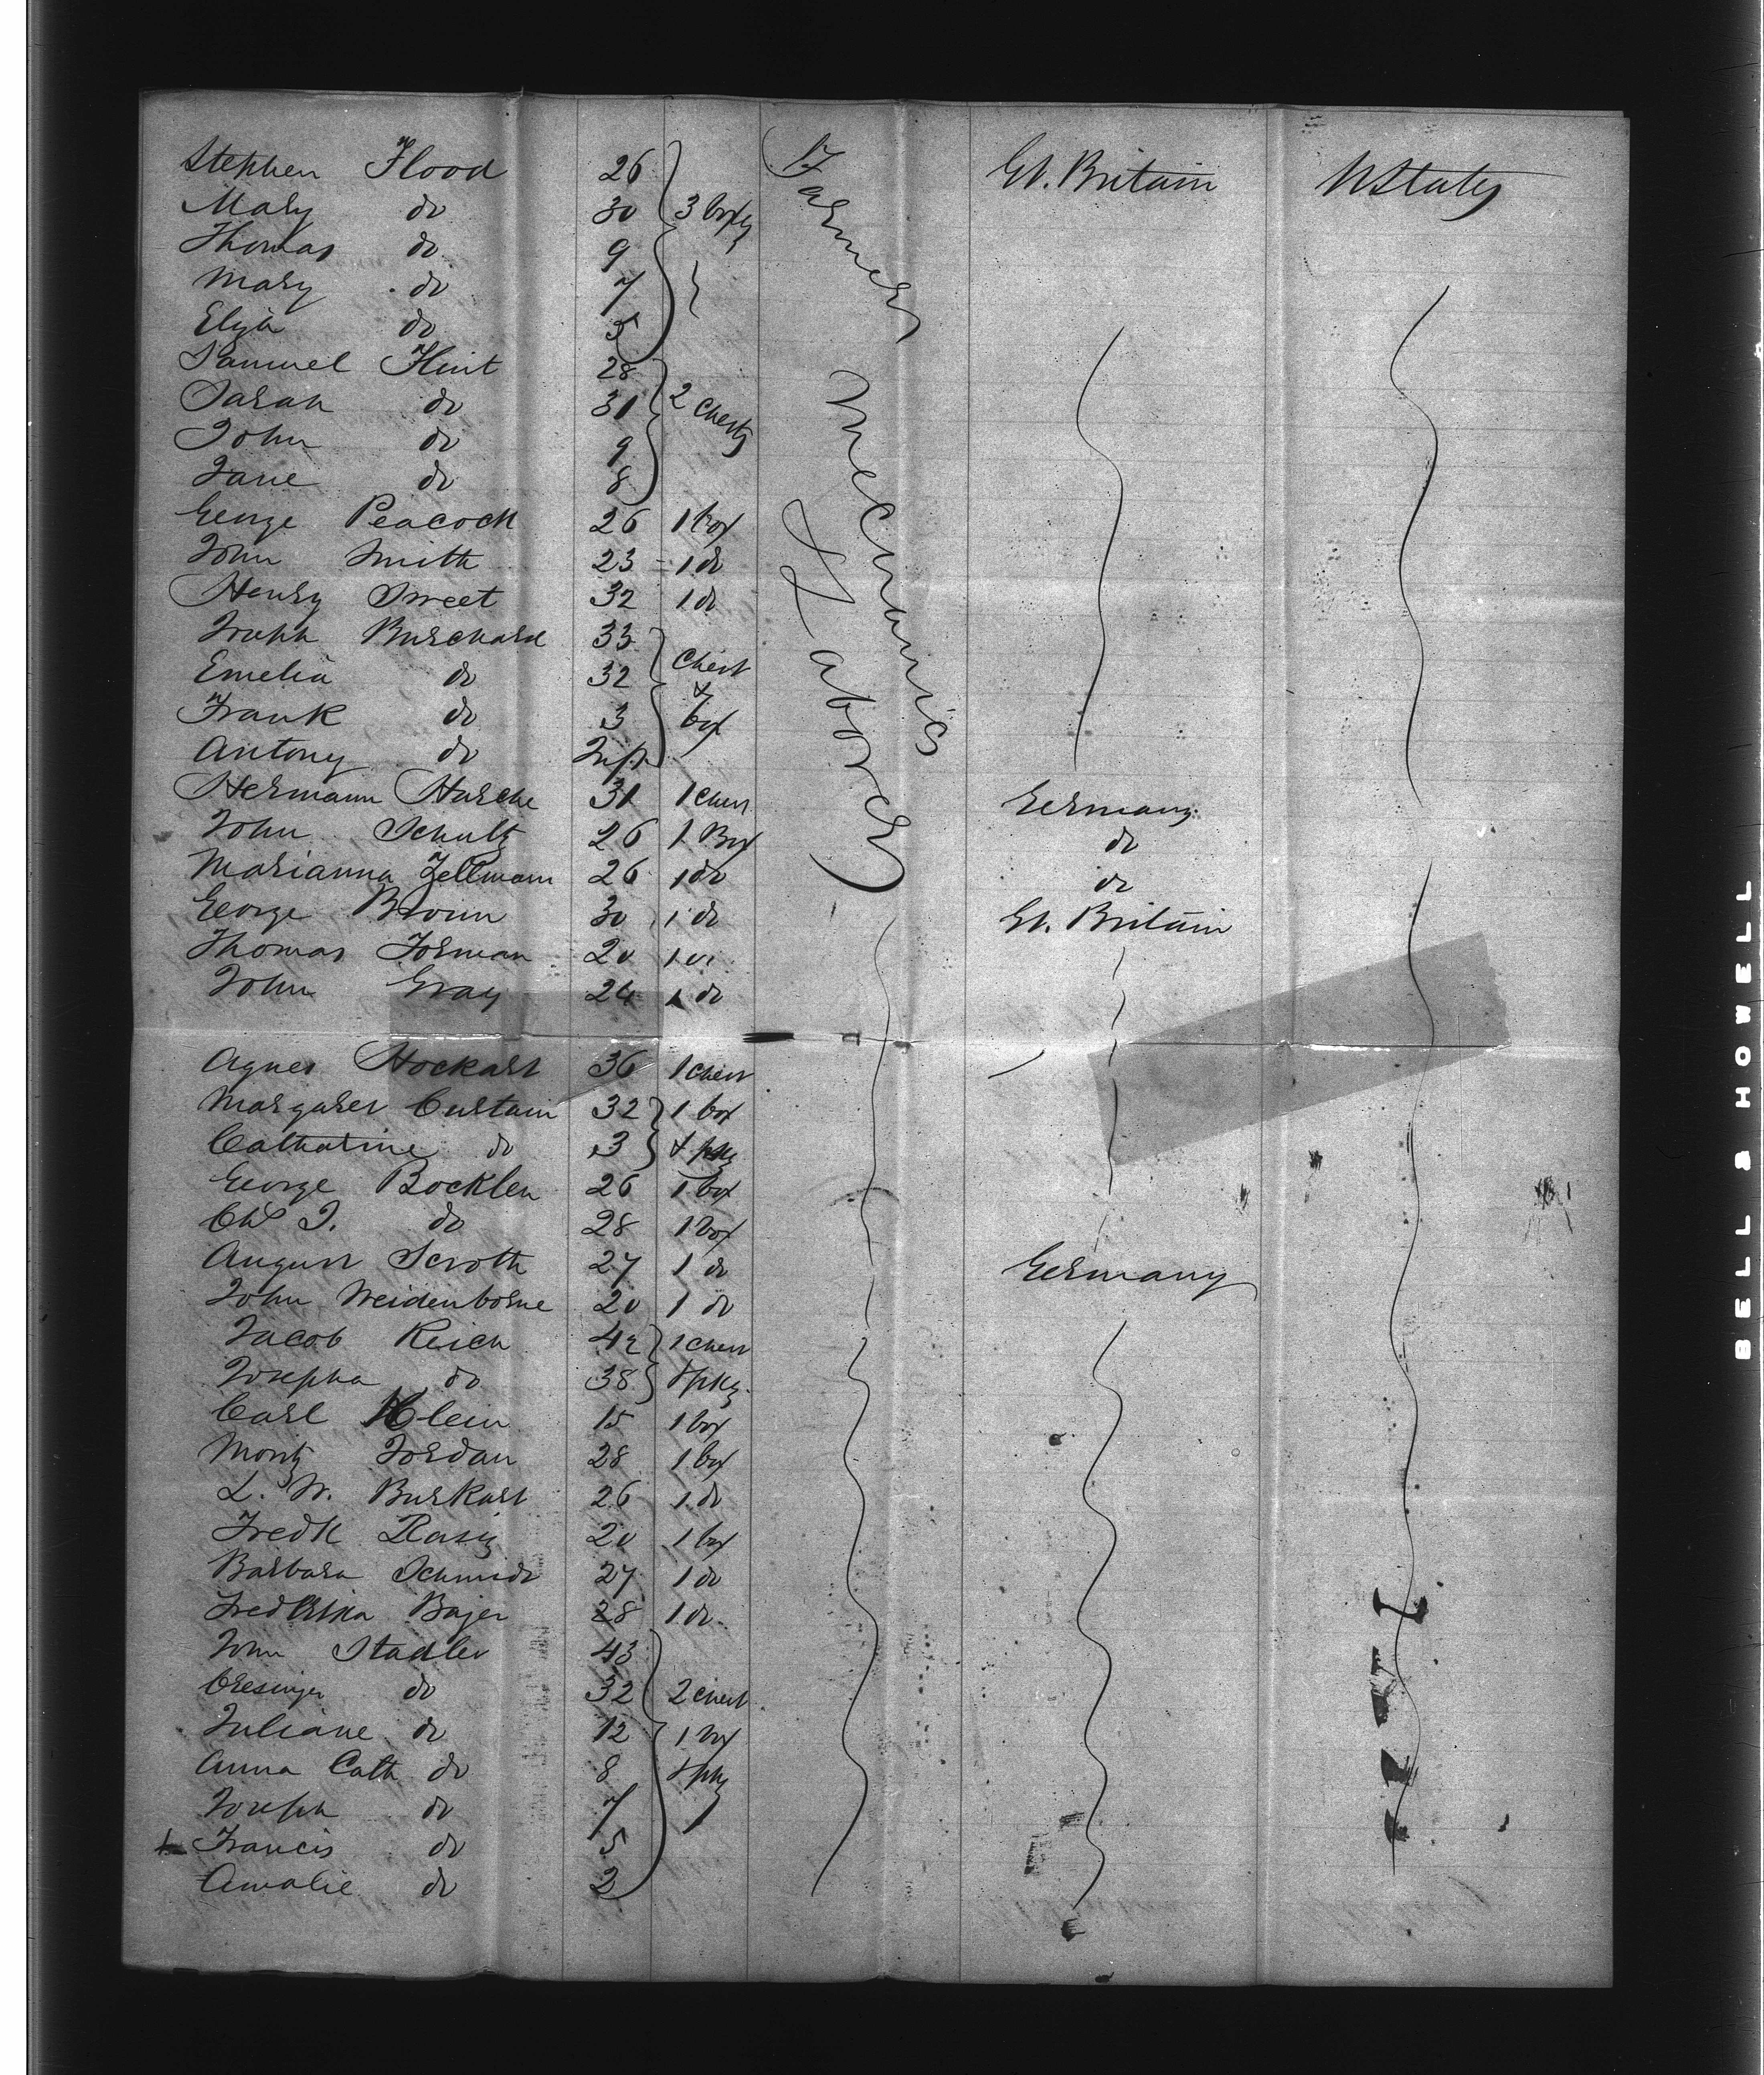 Stephen Flood 26 Gt. Britain U States
Mary do 30 3 boxes
Thomas do 9
Mary do 7
Eliza do 5
Samuel Flint 28
Sarah do 31 2 Chests
John do 9
Jane do 8
George Peacock 26 1 box
John Smith 23 1 do
Henry Sweet 32 1 do
Joseph Burchard 33
Emelia do 32 Chest
Frank do 3 & box
Antony do Inft
Farmers Mechanics & Laborers
Hermann Hasche 31 1 Chest Germany
John Schultz 26 1 Box do
Marianna Zellmann 26 1 do do
George Broun 30 1 do Gt. Britain
Thomas Forman 20 1 do
John Gray 24 1 do
Agnes Hockart 36 1 Chest
Margaret Curtain 32 1 box
Catharine do 3 & pkg
George Bocklen 26 1 box
Chs J. do 28 1 box
August Scroth 27 1 do Germany
John Weidenborne 20 1 do
Jacob Reich 42 1 Chest
Josepha do 38 & pkg
Carl Klein 15 1 box
Moritz Jordan 28 1 box
L. W. Burkart 26 1 do
Fredk Rasig 20 1 box
Barbara Schmidt 27 1 do
Fredrika Bajer 28 1 do
John Stadler 43
do 32 2 Chest
Juliane do 12 1 box
Anna Cath do 8 & pkg
Joseph do 7
Francis do 5
Amalie do 2
BELL & HOWELL